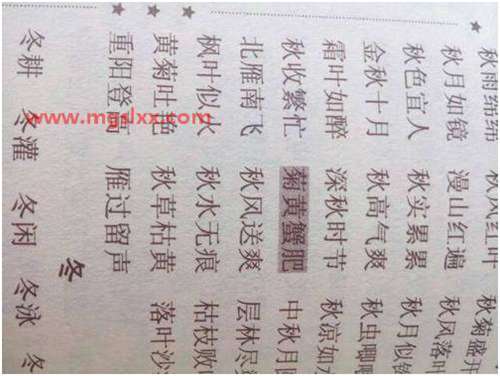 秋雨绵绵 秋风红叶 秋菊盛开
秋月如镜 漫山红遍 秋风落叶
秋色宜人 秋实累累 秋月似镜
金秋十月 秋高气爽 秋虫唧唧
霜叶如醉 深秋时节 秋凉如水
秋收繁忙 菊黄蟹肥 中秋月
北雁南飞 秋风送爽 层林尽
枫叶似火 秋水无痕 枯枝败
黄菊吐艳 秋草枯黄 落叶沙
重阳登高 雁过留声
冬
冬耕 冬灌 冬闲 冬泳 冬